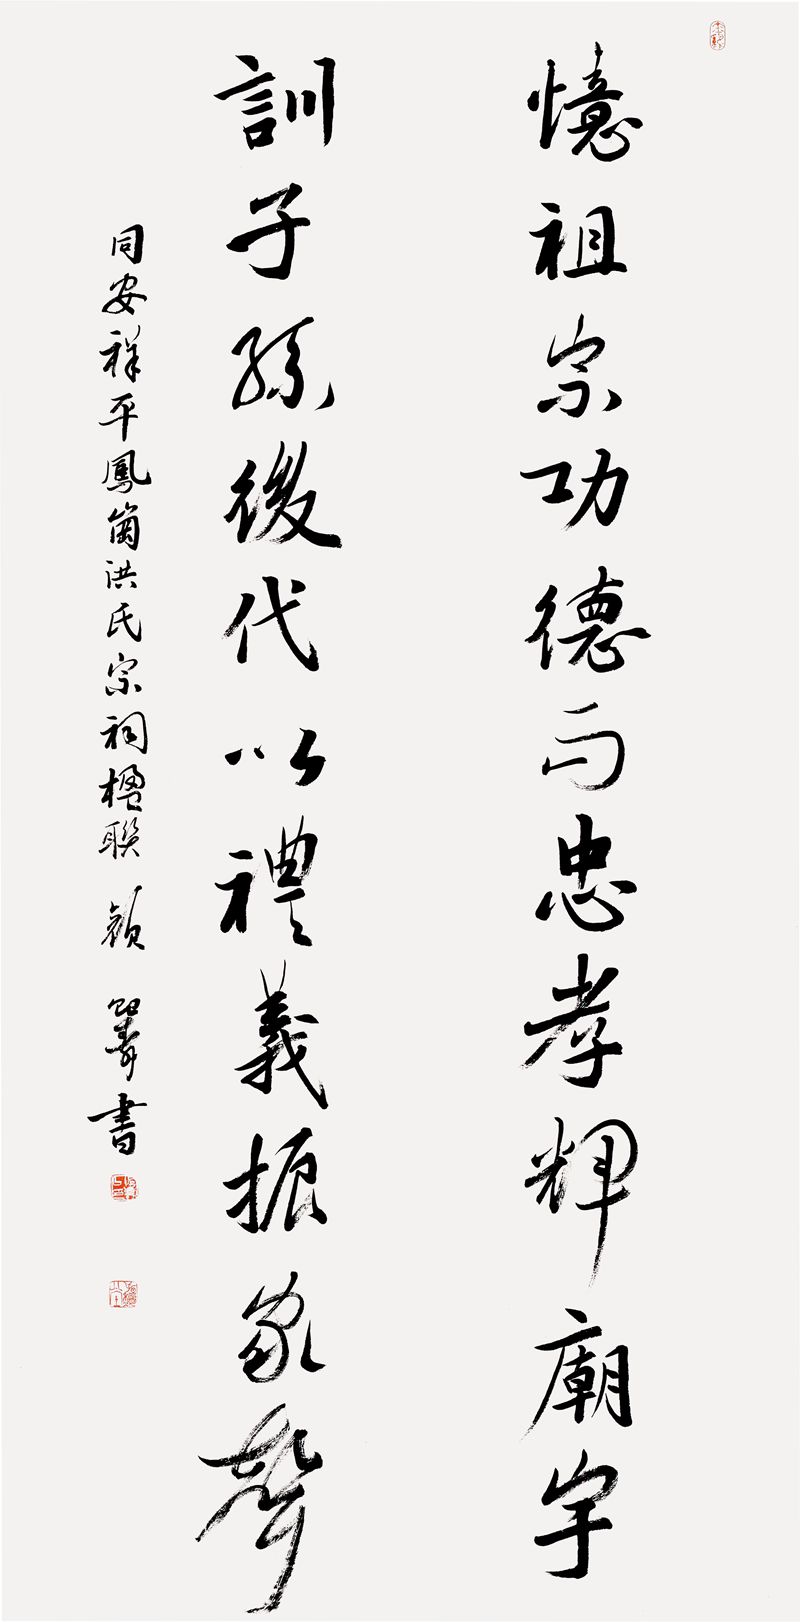 憶祖宗功德而忠孝輝廟宇
訓子孫後代以禮義振家聲
同安祥平鳳崗洪氏宗祠楹聯 書